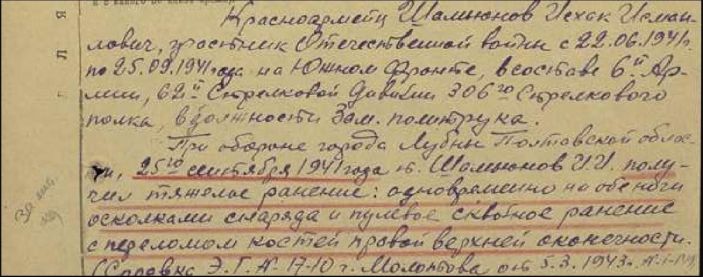 Красноармеец Шамионов Исхак Исмаи-
лович, участник Отечественной войны с 22.06.1941г.
по 25.09.1941 года на Южном Фронте, в составе 6й Ар-
мии, 62й Стрелковой Дивизии 306го Стрелкового
полка, в должности Зам. политрука.
При обороне города Лубны Полтавской облас-
ти, 25го сентября 1941 года т. Шамионов И.И. полу-
чил тяжелое ранение: одновременно на обе ноги
осколками снаряда и пулевое сквозное ранение
с переломом костей правой верхней оконечности.
(Справка Э.Г. № 1710 г. Молотова от 5.3.1943